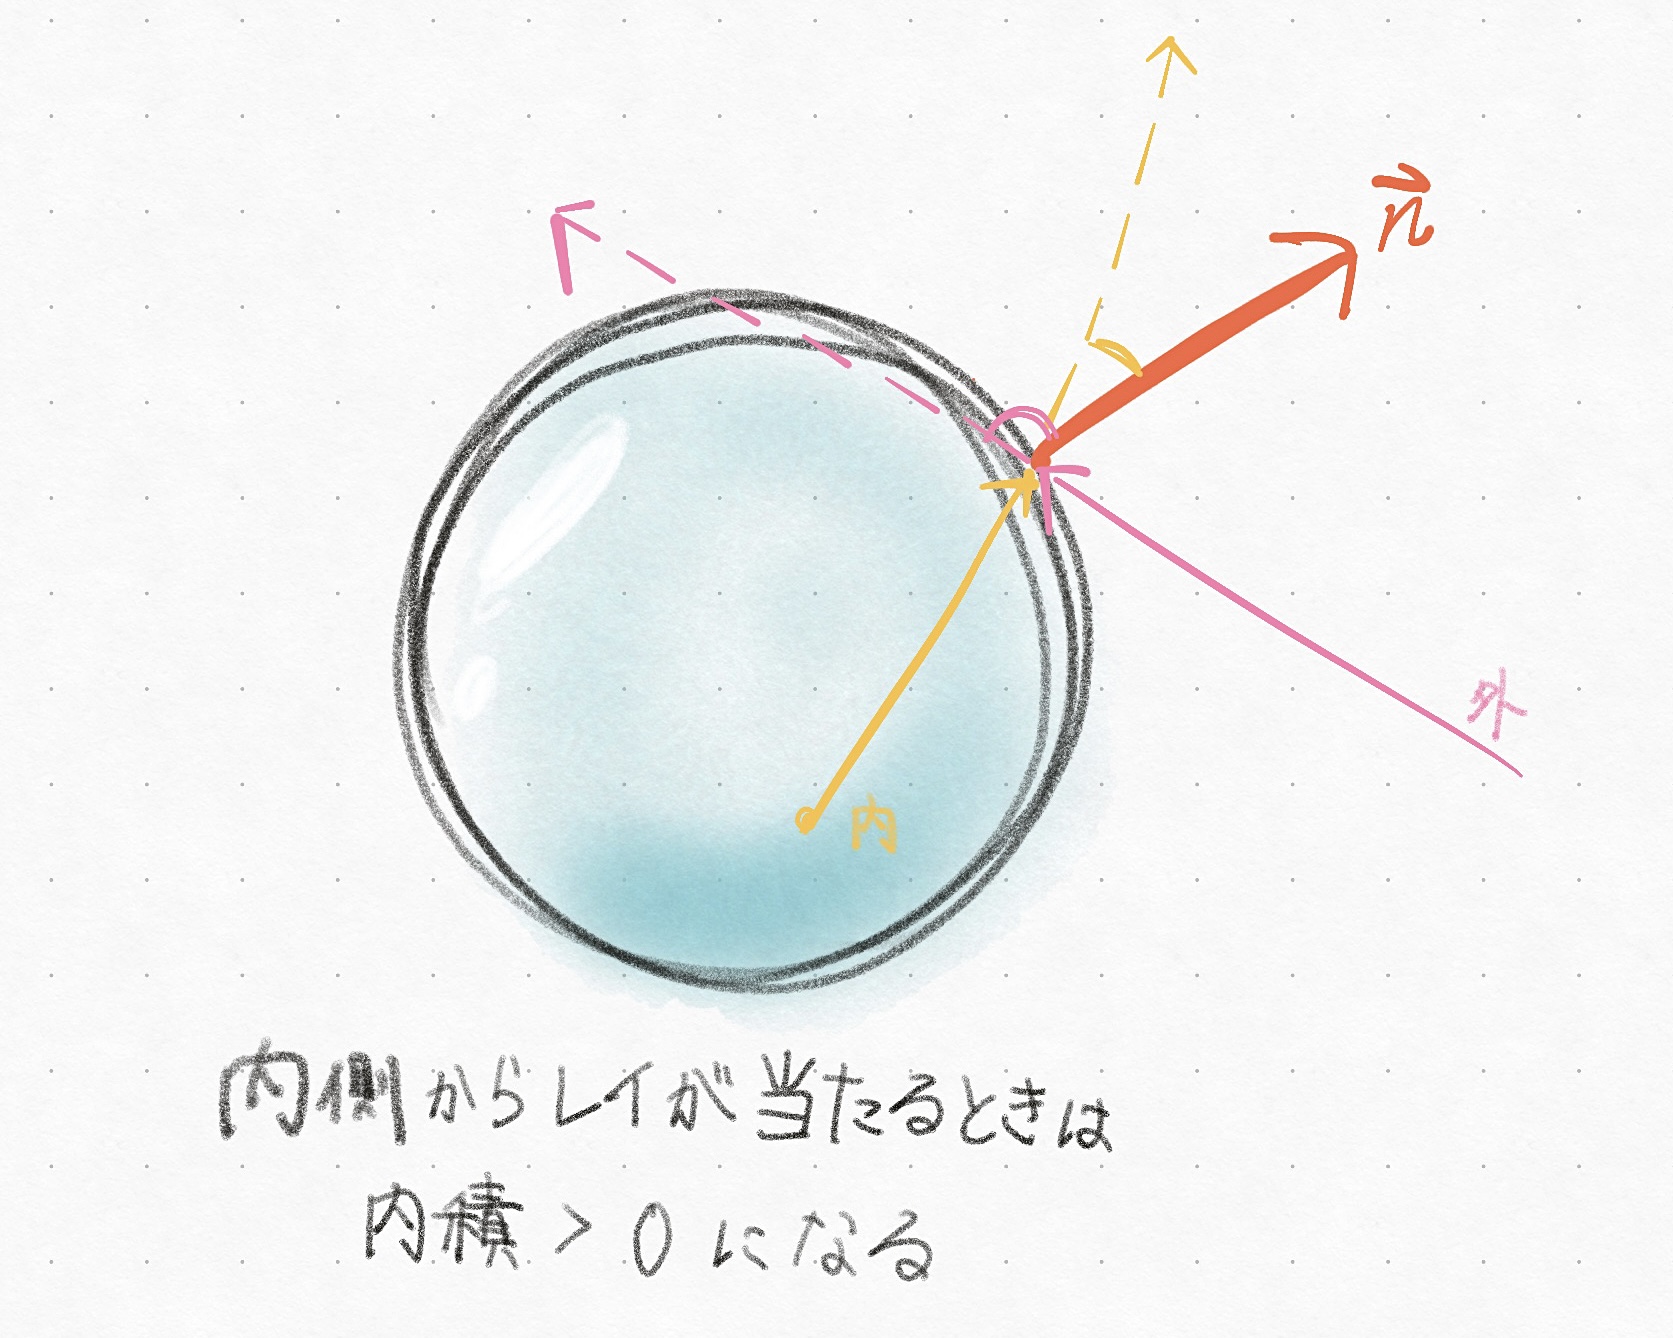 n
外
内
内側からレイが当たるときは
内積 > 0 になる